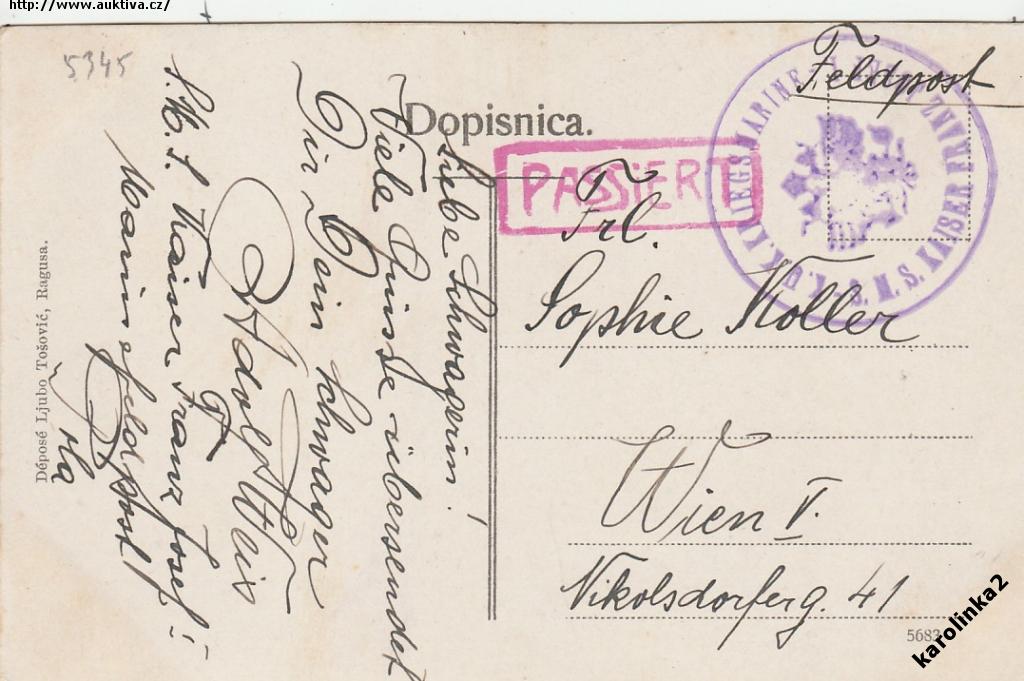 http://www.auktiva.cz/
5345
Dopisnica.
Feldpost
PASSIERT
K.U.K. KRIEGSMARINE
S.M.S. KAISER FRANZ
Frl.
Sophie Koller
Wien V.
Nikolsdorferg. 41
Liebe Schwagerin!
Viele Grüsse übersendet
Dir Dein Schwager
Adolf
S.M.S. Kaiser Franz Josef I
Marinefeldpost
Pola
Déposé Ljubo Tošović, Ragusa.
5683
karolinka2